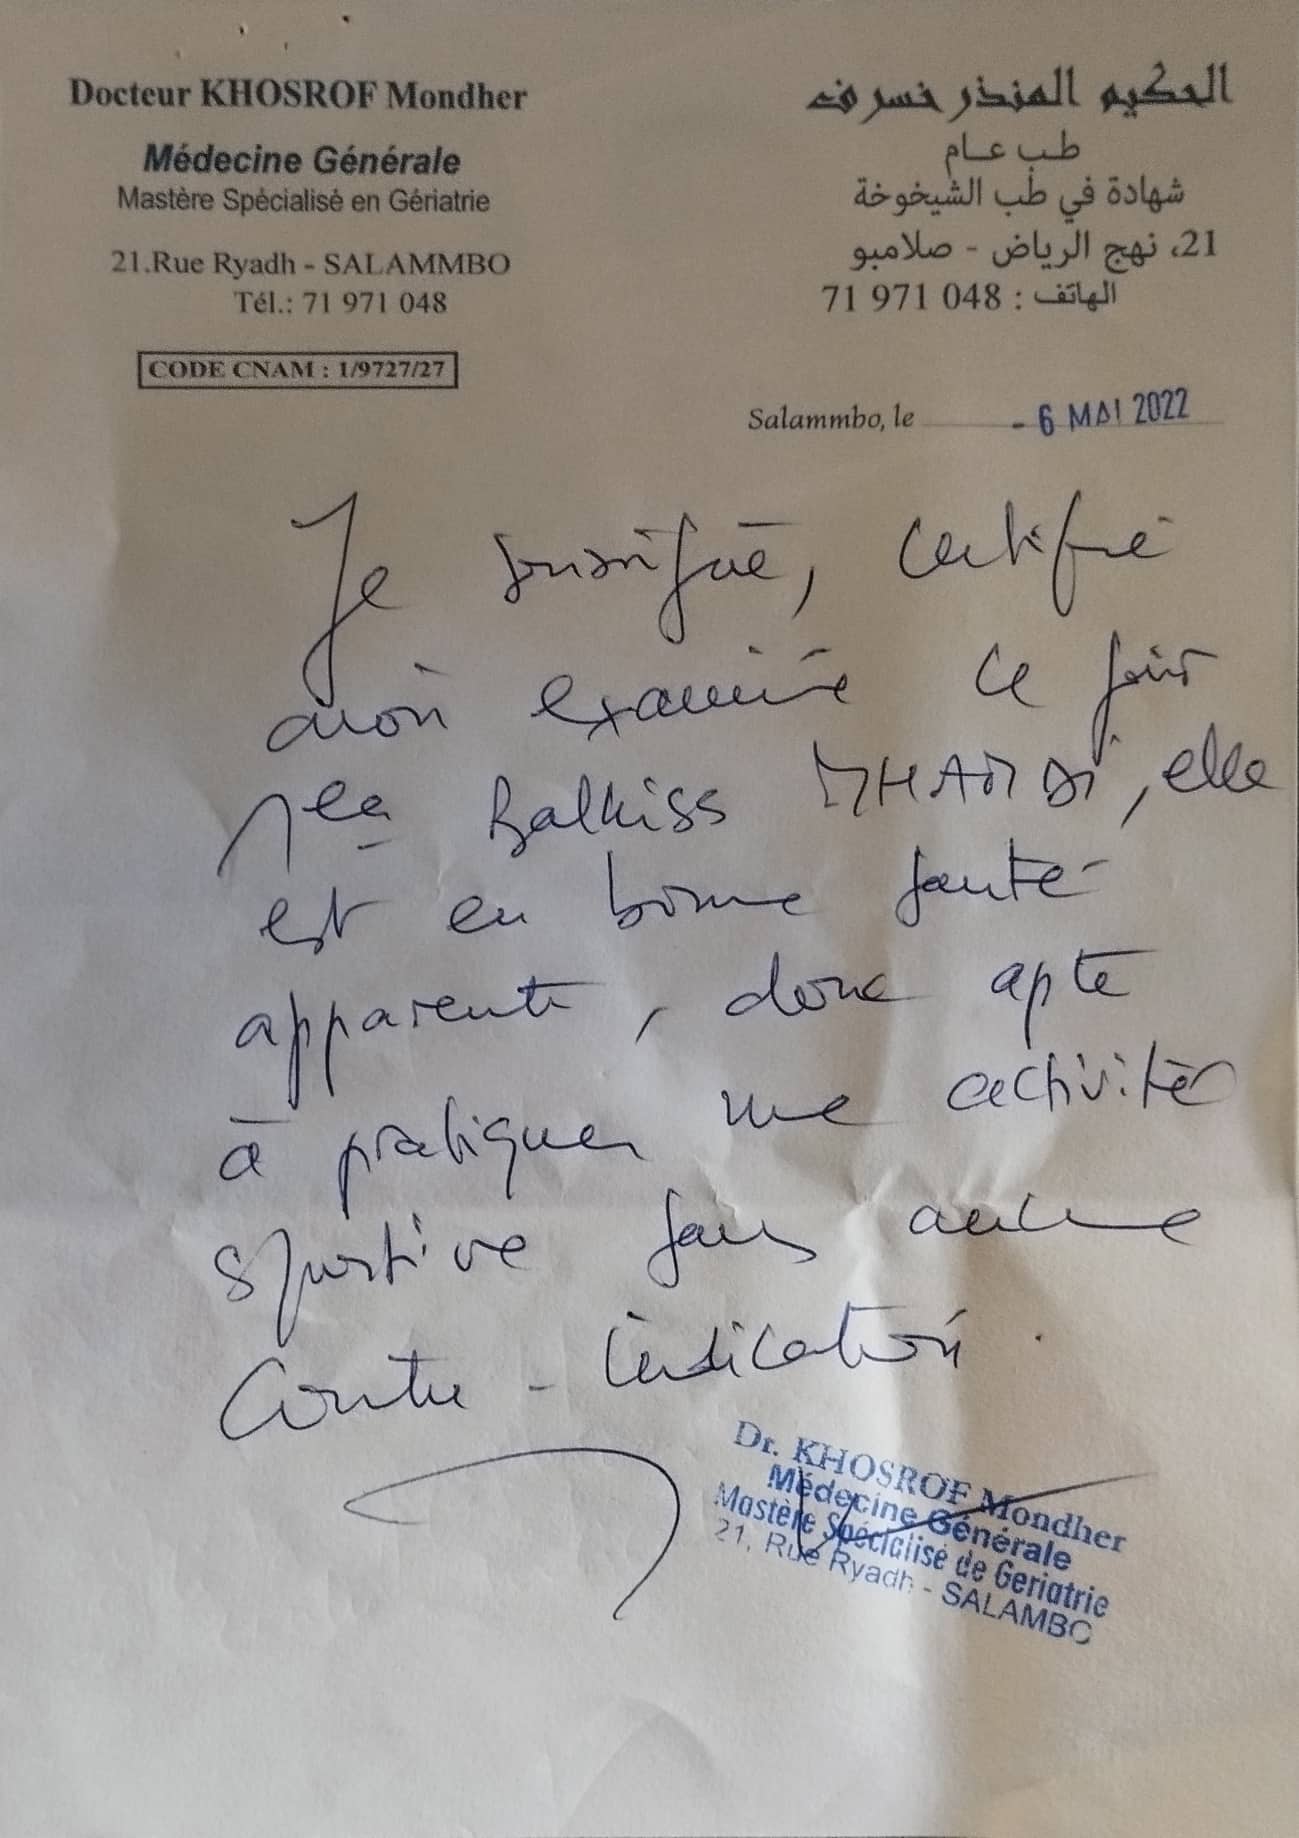 Docteur KHOSROF Mondher
Médecine Générale
Mastère Spécialisé en Gériatrie
21.Rue Ryadh - SALAMMBO
Tél.: 71 971 048
CODE CNAM : 1/9727/27
الحكيم المنذر خسرف
طب عام
شهادة في طب الشيخوخة
21، نهج الرياض - صلامبو
الهاتف : 048 971 71
Salammbo, le - 6 MAI 2022
Je soussigné, certifie
avoir examiné ce jour
Balkiss , elle
est en bonne santé
apparente, donc apte
à pratiquer une activité
sportive sans aucune
contre - indication.
Dr. KHOSROF Mondher
Médecine Générale
Mastère Spécialisé de Geriatrie
21, Rue Ryadh - SALAMBO